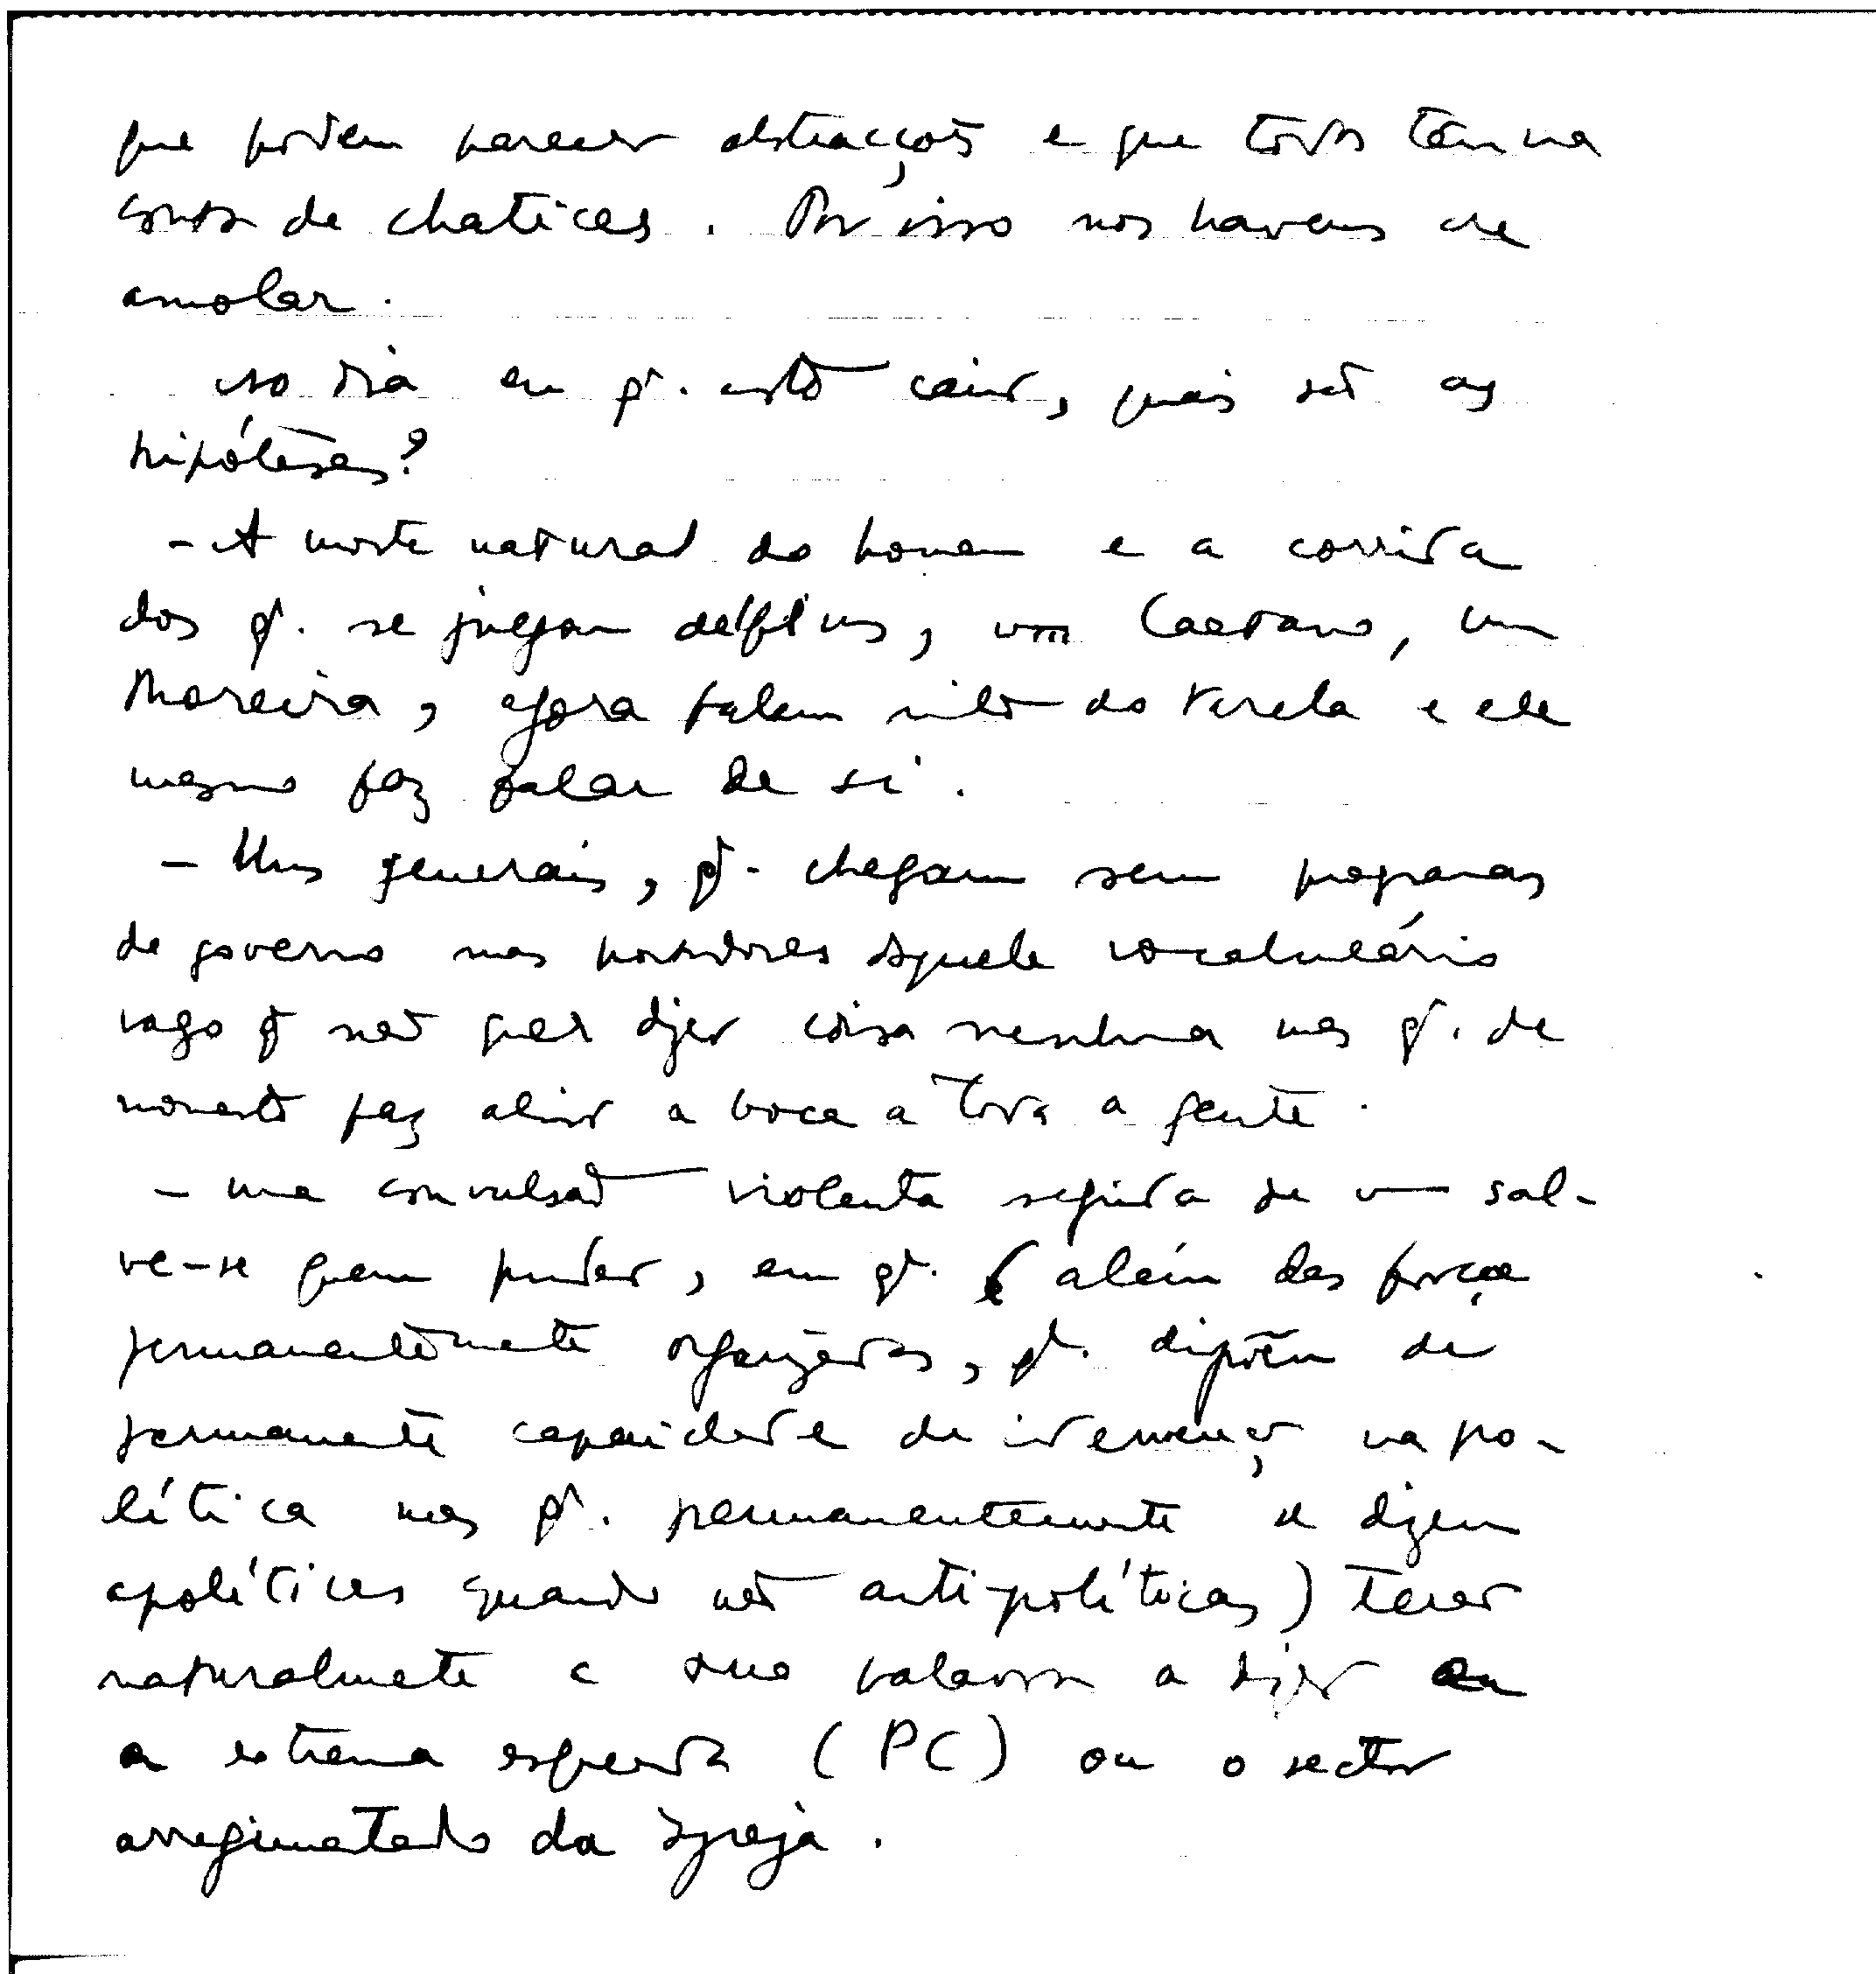 que podem parecer abstracções e que todos têm na
conta de chatices. Por isso nos havemos de
amolar.
No dia em q. isto cair, quais são as
hipóteses?
- A morte natural do homem e a corrida
dos q. se julgam delfins, um Caetano, um
Moreira, agora falam muito do Varela e ele
mesmo faz falar de si.
- Uns generais, q. chegam sem programas
de governo mas portadores daquele vocabulário
vago q não quer dizer coisa nenhuma mas q. de
momento faz abrir a boca a toda a gente.
- uma convulsão violenta seguida de um sal-
ve-se quem puder, em q. (além das forças
permanentemente organizadas, q. dispõem de
permanente capacidade de intervenção na po-
lítica mas q. permanentemente se dizem
apolíticas quando não antipolíticas) terão
naturalmente a sua palavra a dizer ou
a extrema esquerda (PC) ou o sector
arregimentado da Igreja.